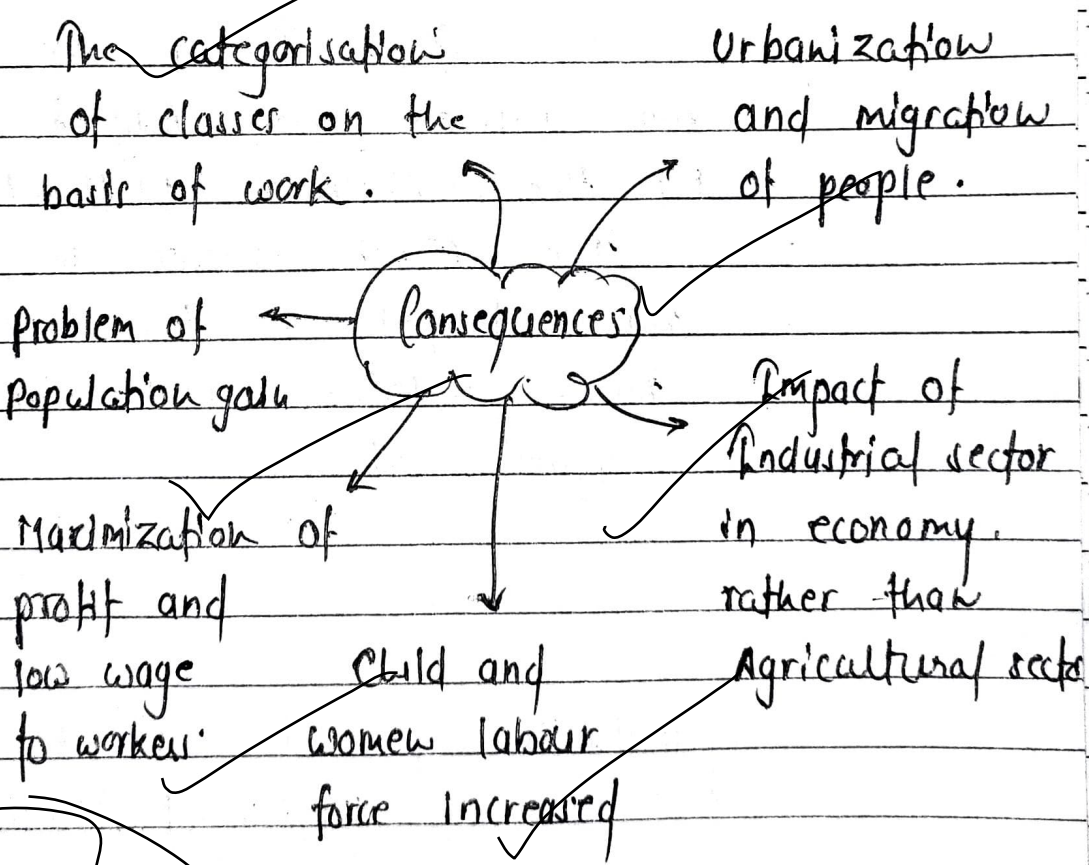 The categorisation
of classes on the
basis of work.
Urbanization
and migration
of people.
Consequences
Problem of
Population gain
Impact of
Industrial sector
in economy.
rather than
Agricultural secto
Maximization of
profit and
low wage
to workers.
Child and
women labour
force increased